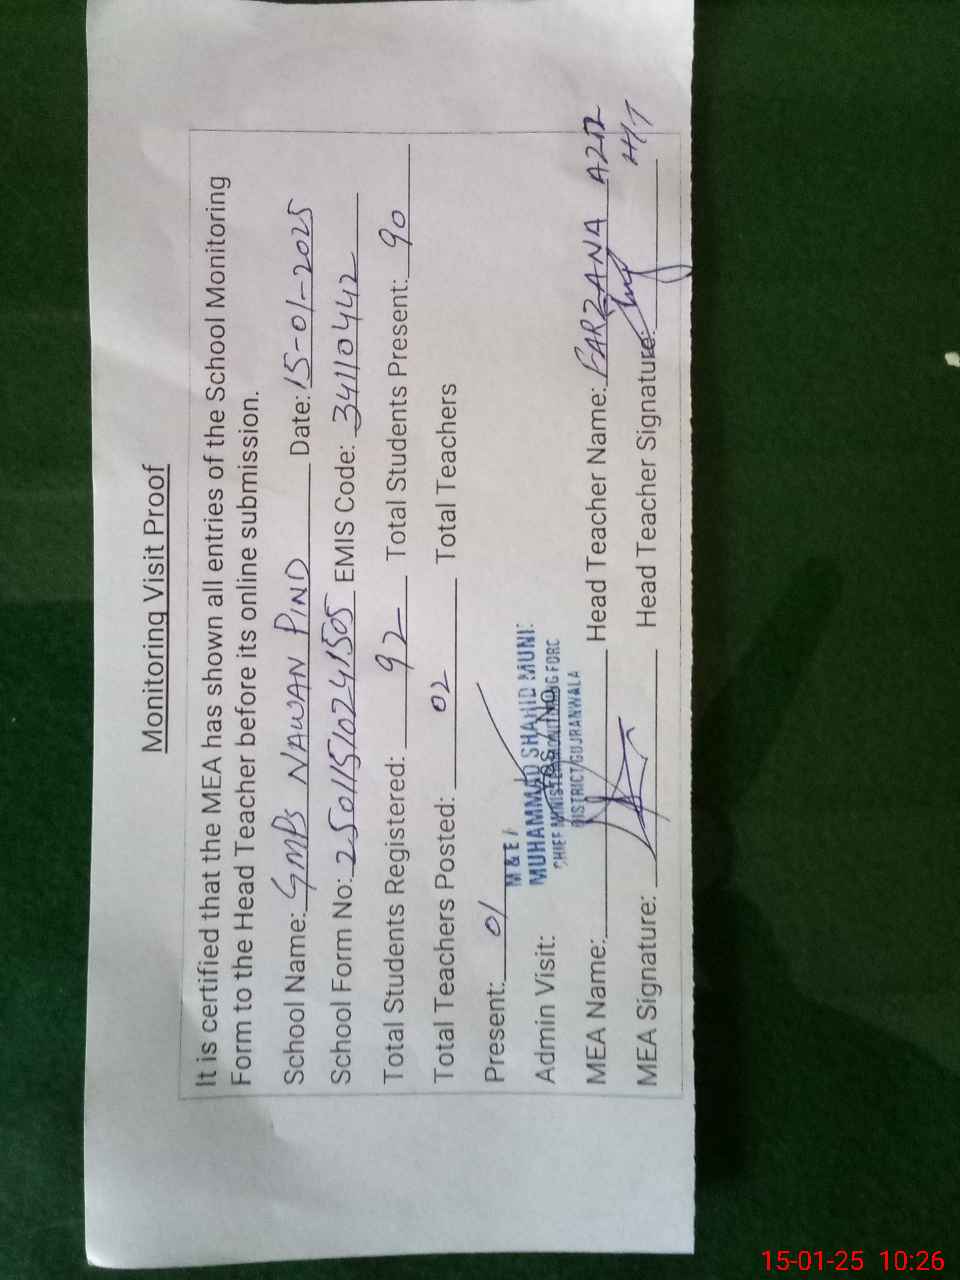 Monitoring Visit Proof
It is certified that the MEA has shown all entries of the School Monitoring
Form to the Head Teacher before its online submission.
School Name: GMPS NAWAN PIND Date: 15-01-2025
School Form No: 25011510241505 EMIS Code: 34110442
Total Students Registered: 92 Total Students Present: 90
Total Teachers Posted: 02 Total Teachers
Present: 01
M & E
Admin Visit: Yes / No
MUHAMMAD SHAHID MUNI
CHIEF MINISTER MONITORING FORC
DISTRICT GUJRANWALA
MEA Name: Head Teacher Name: FARZANA
MEA Signature: Head Teacher Signature: H/T
15-01-25 10:26